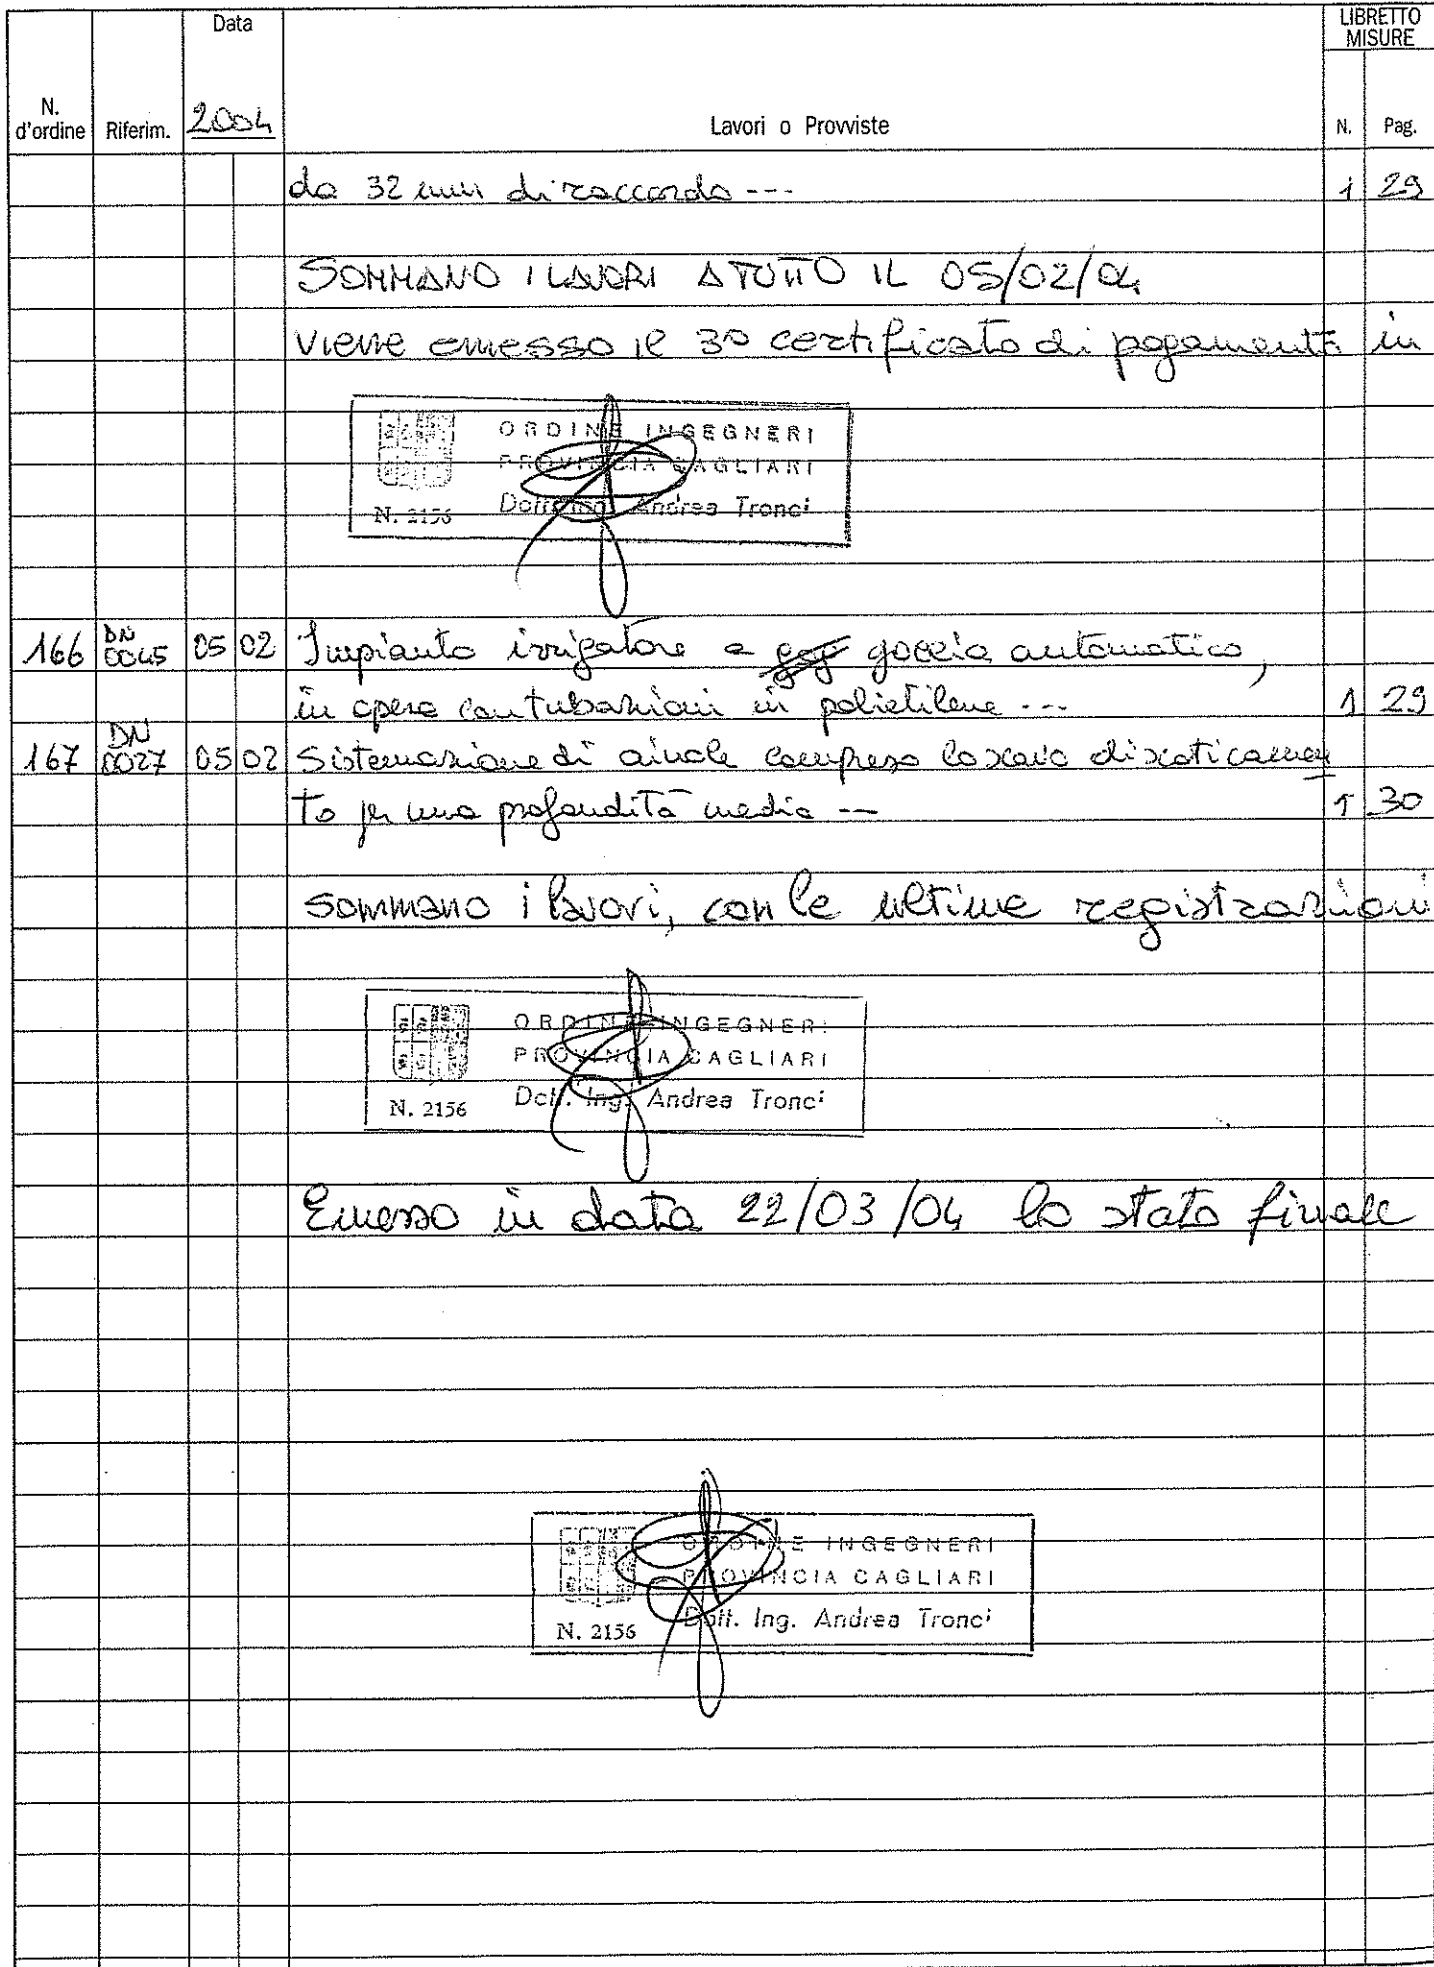 Data
LIBRETTO
MISURE
N.
d'ordine Riferim. 2004 Lavori o Provviste N. Pag.
da 32 mm di raccordo --- 1 29
SOMMANO I LAVORI A TUTTO IL 05/02/04
viene emesso il 3° certificato di pagamento in
ORDINE INGEGNERI
PROVINCIA CAGLIARI
N. 2156 Dott. Ing. Andrea Tronci
166 DN 0045 05 02 Impianto irrigatore a goccia automatico,
in opera con tubazioni in polietilene --- 1 29
167 DN 0027 05 02 Sistemazione di aiuole compreso lo scavo di scoticamen
to per una profondità media -- 1 30
sommano i lavori, con le ultime registrazioni
ORDINE INGEGNERI
PROVINCIA CAGLIARI
N. 2156 Dott. Ing. Andrea Tronci
Emesso in data 22/03/04 lo stato finale
ORDINE INGEGNERI
PROVINCIA CAGLIARI
N. 2156 Dott. Ing. Andrea Tronci